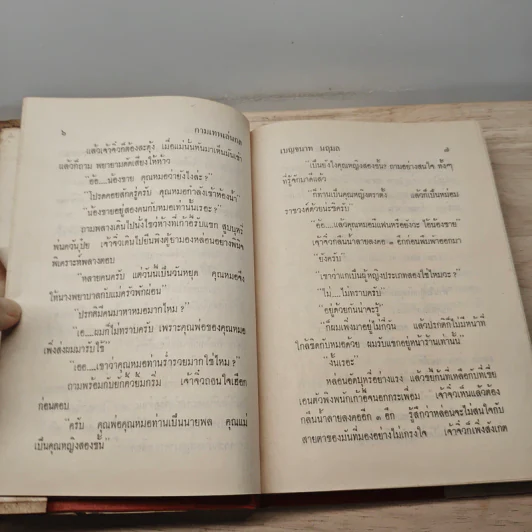 ๖ กามเทพเล่นกล
แล้วเจ้าจิ๋วก็ต้องสะดุ้ง เมื่อแม่นั่นหันมาเห็นมันเข้า
แล้วก็ถาม พยายามดัดเสียงให้ห้าว
“อ้อ...น้องชาย คุณหมอว่ายังไงล่ะ?”
“โปรดคอยสักครู่ครับ คุณหมอกำลังเข้าห้องน้ำ”
“น้องชายอยู่สองคนกับหมอเท่านั้นเรอะ?”
ถามพลางเดินไปนั่งไขว่ห้างที่เก้าอี้รับแขก สูบบุหรี่
พ่นควันปุ๋ย เจ้าจิ๋วเดินไปยืนพิงตู้ยามองหล่อนอย่างพินิจ
พิเคราะห์พลางตอบ
“หลายคนครับ แต่วันนี้เป็นวันหยุด คุณหมอจึง
ให้นางพยาบาลกับแม่ครัวพักผ่อน”
“ปรกติมีคนมาหาหมอมากไหม?”
“เอ้....ผมก็ไม่ทราบครับ เพราะคุณพ่อของคุณหมอ
เพิ่งส่งผมมารับใช้”
“เออ....เขาว่าคุณหมอท่านร่ำรวยมากใช่ไหม?”
ถามพร้อมกับยักคิ้วยิ้มกริ่ม เจ้าจิ๋วถอนใจเฮือก
ก่อนตอบ
“ครับ คุณพ่อคุณหมอท่านเป็นนายพล คุณแม่
เป็นคุณหญิงสองขั้น”
เบญจนาท นฤมล ๗
“เป็นยังไงคุณหญิงสองขั้น? ถามอย่างสนใจ ทั้งๆ
ที่รู้จักมาดีแล้ว
“ก็ท่านเป็นคุณหญิงตราตั้ง แล้วก็เป็นหม่อม
ราชวงศ์ด้วยน่ะซีครับ”
“อ้อ....แล้วคุณหมอมีแฟนหรือยังวะ ไอ้น้องชาย”
เจ้าจิ๋วกลืนน้ำลายลงคอ ๑ อึกก่อนพึมพำออกมา
“ยังครับ”
“เขาว่าแกเป็นผู้หญิงประเภทสองใช่ไหมวะ?”
“ไม่....ไม่ทราบครับ”
“อยู่ด้วยกันน่าจะรู้”
“ก็ผมเพิ่งมาอยู่ไม่กี่วัน แล้วปรกติก็ไม่มีหน้าที่
ใกล้ชิดกับหมอด้วย ผมรับแขกอยู่หน้าร้านเท่านั้น”
“งั้นเรอะ”
หล่อนอัดบุหรี่อย่างแรง แล้วขยี้กับที่เขี่ย
เอนตัวพิงพนักเก้าอี้จนอกกระเพื่อม เจ้าจิ๋วเห็นแล้วต้อง
กลืนน้ำลายลงคออีก ๑ อึก รู้สึกว่าหล่อนจะไม่สนใจกับ
สายตาของมันที่มองอย่างไม่เกรงใจ เจ้าจิ๋วก็เพิ่งสังเกต